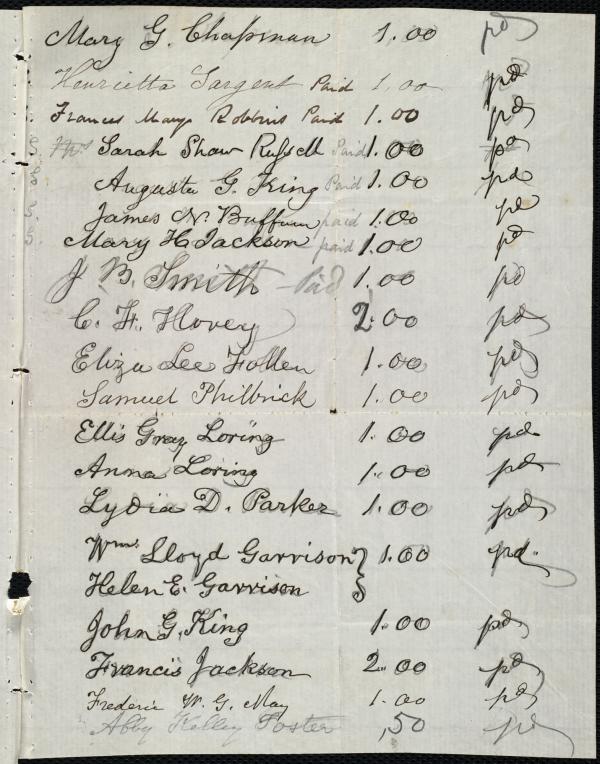 Mary G. Chapman 1.00 pd
Henrietta Sargent Paid 1.00 pd
Frances Mary Robbins Paid 1.00 pd
Mrs Sarah Shaw Russell Paid 1.00 pd
Augusta G. King Paid 1.00 pd
James N. Buffum paid 1.00 pd
Mary H. Jackson paid 1.00 pd
J B. Smith Paid 1.00 pd
C. F. Hovey 2.00 pd
Eliza Lee Follen 1.00 pd
Samuel Philbrick 1.00 pd
Ellis Gray Loring 1.00 pd
Anna Loring 1.00 pd
Lydia D. Parker 1.00 pd
Wm. Lloyd Garrison } 1.00 pd.
Helen E. Garrison
John G. King 1.00 pd
Francis Jackson 2.00 pd
Frederic W. G. May 1.00 pd
Abby Kelley Foster ,50 pd